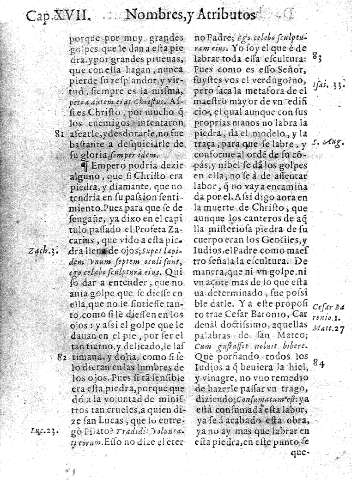 Cap. XVII. Nombres, y Atributos
porque por muy grandes
golpes que le dan a esta pie
dra, y por grandes pruevas,
que con ella hagan, nunca
pierde su resplandor, y vir-
tud, siempre es la misma,
petra autem erat Christus. Assi
es Christo, por mucho q̃
los enemigos intentaron
81 afearle, y desdorarle, no fue
bastante a desquiciarle de
su gloria, semper idem.
¶ Empero podria dezir
alguno, que si Christo era
piedra, y diamante, que no
tendria en su passion senti-
miento. Pues para que se de
sengañe, ya dixo en el capi
tulo passado el Profeta Za-
carias, que vido a esta pie
Zach. 3. dra llena de ojos, super lapi-
dem unum septem oculi sunt,
ego celabo sculpturam eius. Qui
so dar a entender, que no
avia golpe que se diesse en
ella, que no le sintiesse tan-
to, como si le diessen en los
ojos: y assi el golpe que le
davan en el pie, por ser el
tan tierno, y delicado, le las
82 timava, y dolia, como si se
lo dieran en las lumbres de
los ojos. Pues si tã sensible
era esta piedra, porque que
dò a la voluntad de minist
tros tan crueles, a quien di-
ze san Lucas, que lo entre-
Luc. 23. gò Pilato? Tradidit volunta-
ti eorum. Esso no dize el eter
no Padre; Ego celabo sculptu-
ram eius. Yo soy el que è de
labrar toda essa escultura: 83
Pues como es esso Señor,
fuystes vos el verdugo? no,
pero saca la metafora de el Isai. 33.
maestro mayor de un edifi
cio, el qual aunque con sus
proprias manos no labra la
piedra, da el modelo, y la
traça, para que se labre, y S. Aug.
conforme al orde de su co-
pàs, y nibel se dà los golpes
en ella, no es de assentar
labor, q̃ no vaya encamina
da por el. Assi digo aora en
la muerte de Christo, que
aunque los canteros de aq̃
lla misteriosa piedra de su
cuerpo eran los Gentiles, y
Iudios, el Padre como maes
tro señala la escultura. De
manera, que ni un golpe, ni
un açote mas de lo que esta
va determinado, fue possi
ble darle. Y a este proposi
to trae Cesar Baronio, Car Cesar Ba
denal doctissimo, aquellas ronio. 1.
palabras de san Mateo; Matt. 27
Cum gustasset noluit bibere.
Que porfiando todos los 84
Iudios a q̃ beuiera la hiel,
y vinagre, no vuo remedio
de hazerle passar vn trago,
diziendo; Consumatum est: ya
està consumada esta labor,
ya se à acabado esta obra,
ya no ay mas que labrar en
esta piedra, en este punto se
que-